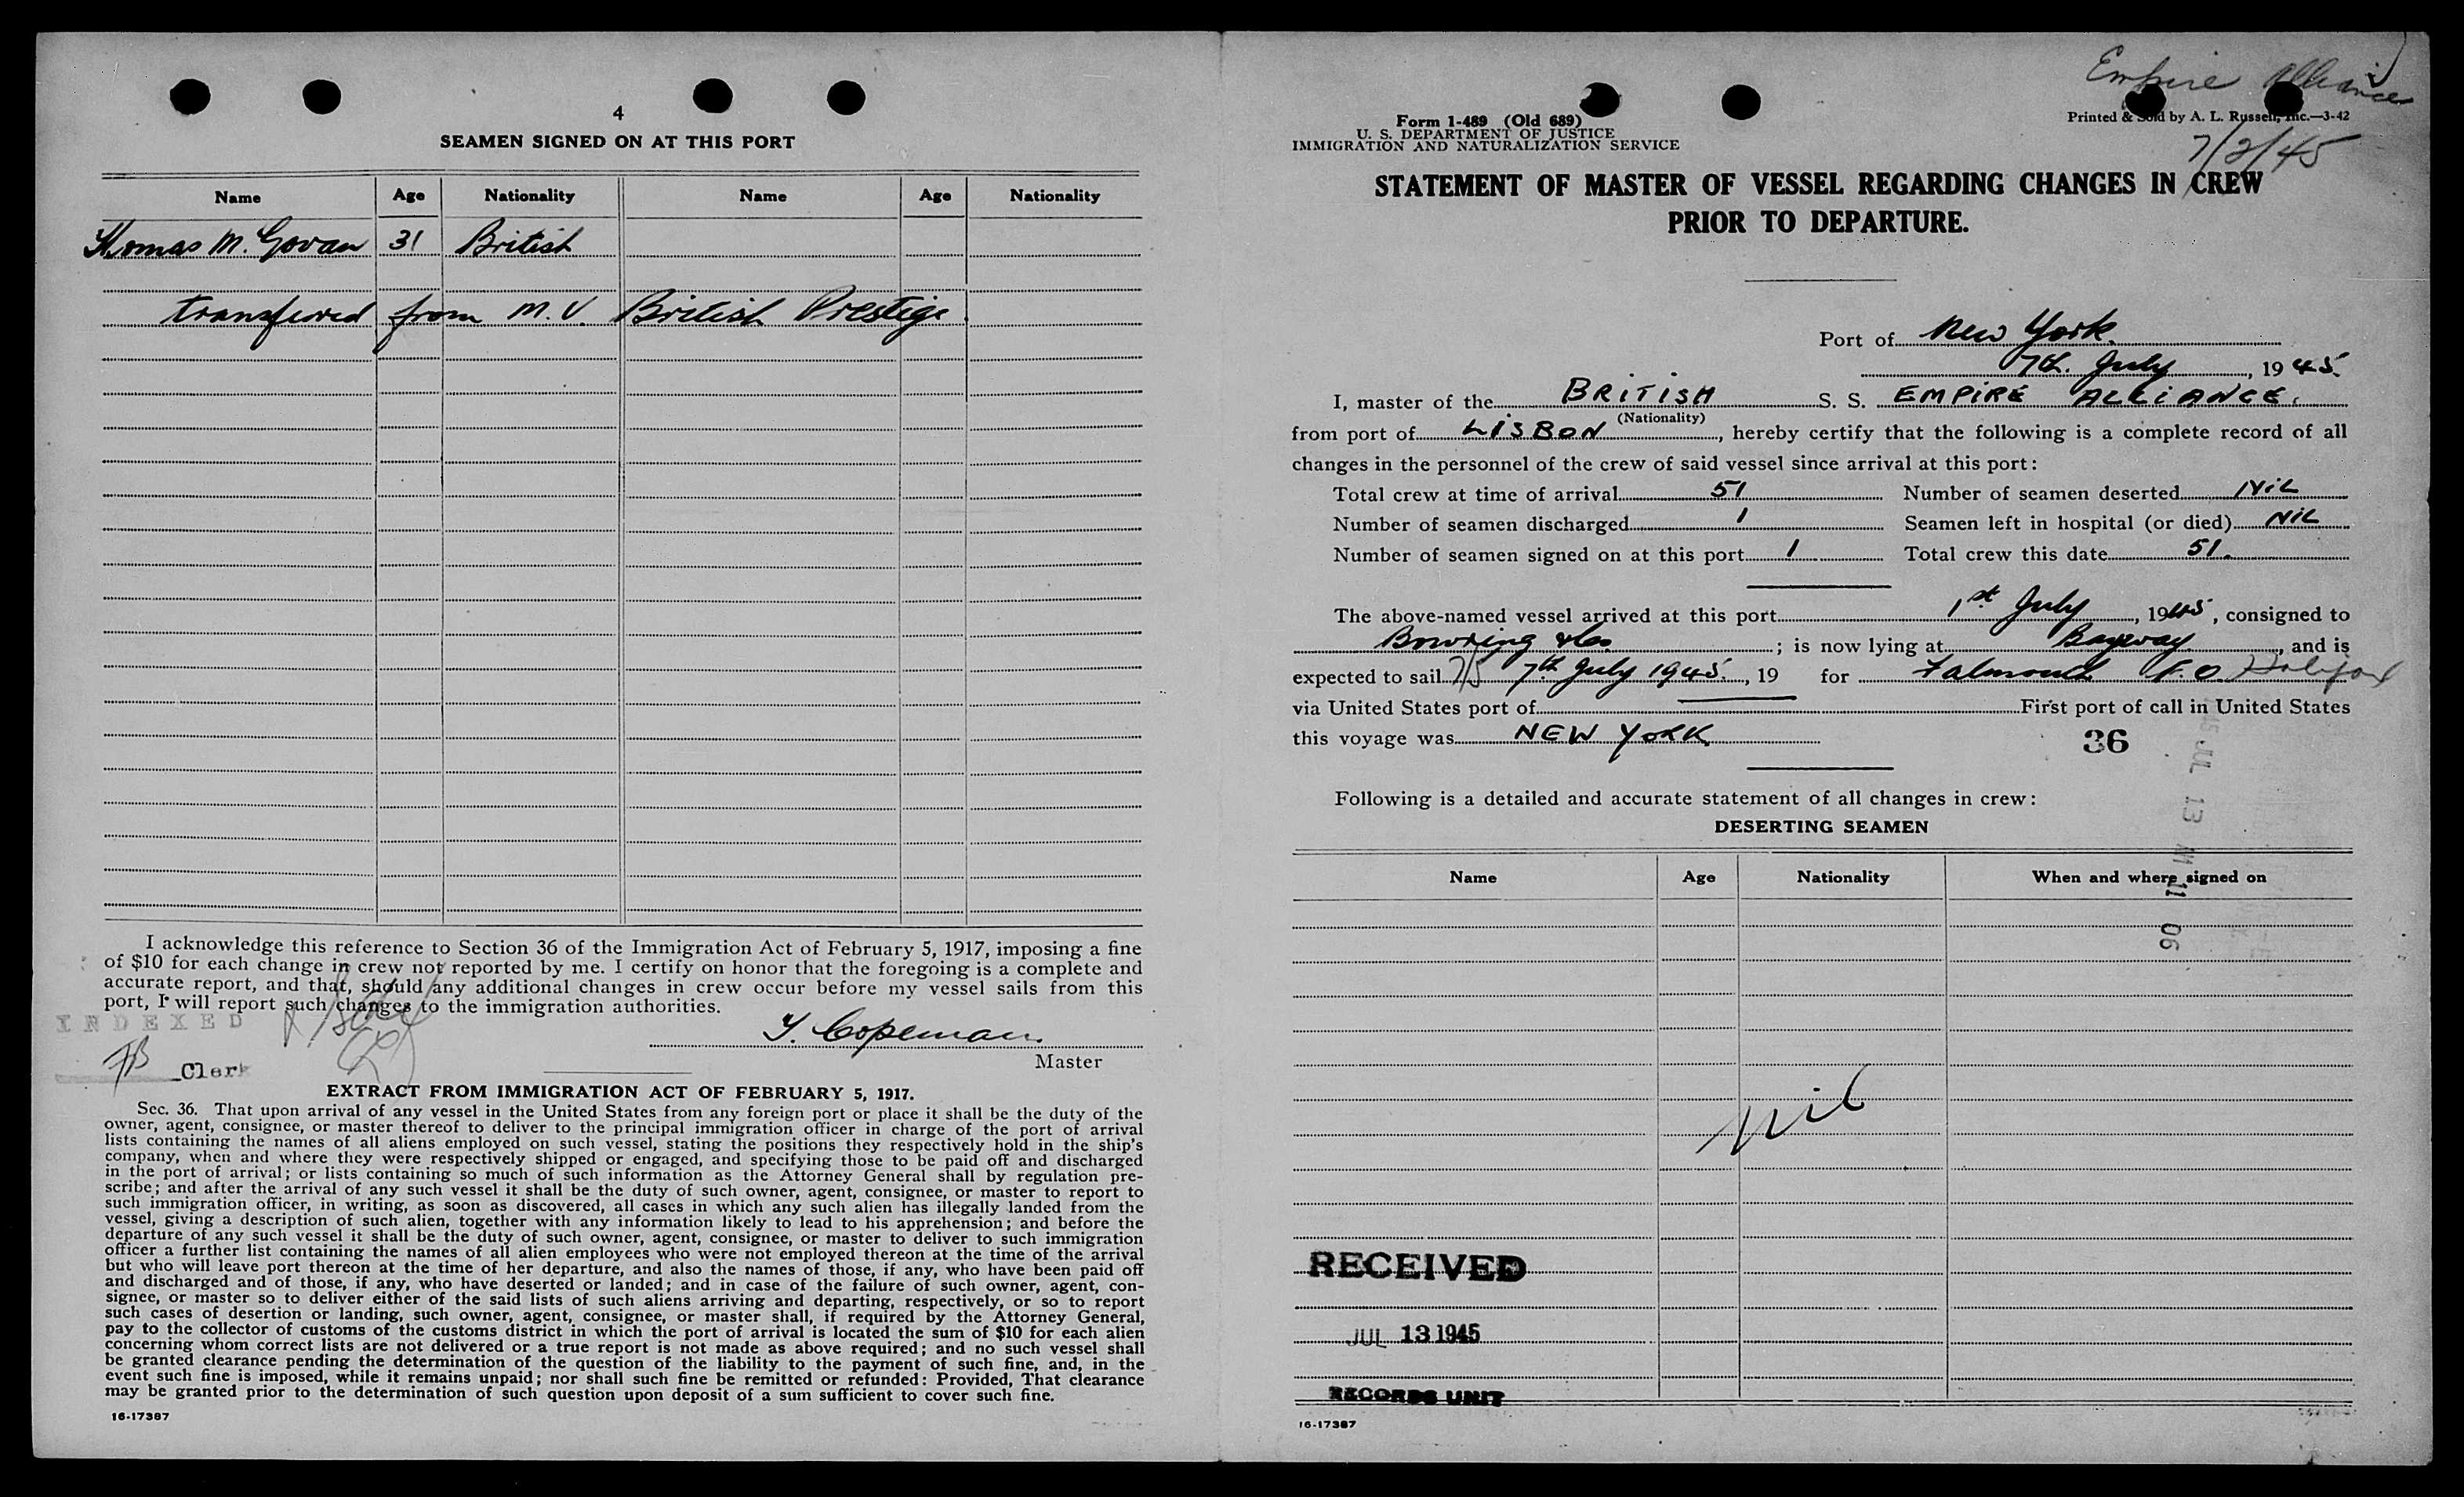 4
SEAMEN SIGNED ON AT THIS PORT
Name Age Nationality Name Age Nationality
Thomas M. Govan 31 British
transfered from M.V. British Prestige
I acknowledge this reference to Section 36 of the Immigration Act of February 5, 1917, imposing a fine
of $10 for each change in crew not reported by me. I certify on honor that the foregoing is a complete and
accurate report, and that, should any additional changes in crew occur before my vessel sails from this
port, I will report such changes to the immigration authorities.
INDEXED
Y. Copeman.
Master
Clerk
EXTRACT FROM IMMIGRATION ACT OF FEBRUARY 5, 1917.
Sec. 36. That upon arrival of any vessel in the United States from any foreign port or place it shall be the duty of the
owner, agent, consignee, or master thereof to deliver to the principal immigration officer in charge of the port of arrival
lists containing the names of all aliens employed on such vessel, stating the positions they respectively hold in the ship's
company, when and where they were respectively shipped or engaged, and specifying those to be paid off and discharged
in the port of arrival; or lists containing so much of such information as the Attorney General shall by regulation pre-
scribe; and after the arrival of any such vessel it shall be the duty of such owner, agent, consignee, or master to report to
such immigration officer, in writing, as soon as discovered, all cases in which any such alien has illegally landed from the
vessel, giving a description of such alien, together with any information likely to lead to his apprehension; and before the
departure of any such vessel it shall be the duty of such owner, agent, consignee, or master to deliver to such immigration
officer a further list containing the names of all alien employees who were not employed thereon at the time of the arrival
but who will leave port thereon at the time of her departure, and also the names of those, if any, who have been paid off
and discharged and of those, if any, who have deserted or landed; and in case of the failure of such owner, agent, con-
signee, or master so to deliver either of the said lists of such aliens arriving and departing, respectively, or so to report
such cases of desertion or landing, such owner, agent, consignee, or master shall, if required by the Attorney General,
pay to the collector of customs of the customs district in which the port of arrival is located the sum of $10 for each alien
concerning whom correct lists are not delivered or a true report is not made as above required; and no such vessel shall
be granted clearance pending the determination of the question of the liability to the payment of such fine, and, in the
event such fine is imposed, while it remains unpaid; nor shall such fine be remitted or refunded: Provided, That clearance
may be granted prior to the determination of such question upon deposit of a sum sufficient to cover such fine.
16-17387
Empire Alliance
Form 1-489 (Old 689)
Printed & Sold by A. L. Russell, Inc.—3-42
U. S. DEPARTMENT OF JUSTICE
IMMIGRATION AND NATURALIZATION SERVICE
7/2/45
STATEMENT OF MASTER OF VESSEL REGARDING CHANGES IN CREW
PRIOR TO DEPARTURE.
Port of New York.
7th. July, 1945.
I, master of the BRITISH S. S. EMPIRE ALLIANCE.
(Nationality)
from port of LISBON, hereby certify that the following is a complete record of all
changes in the personnel of the crew of said vessel since arrival at this port:
Total crew at time of arrival 51 Number of seamen deserted NIL
Number of seamen discharged 1 Seamen left in hospital (or died) NIL
Number of seamen signed on at this port 1 Total crew this date 51.
The above-named vessel arrived at this port 1st July, 1945, consigned to
Bowring & Co.; is now lying at Bayway, and is
expected to sail 7/5 7th July 1945., 19 for Falmouth F.O. Halifax
via United States port of First port of call in United States
this voyage was NEW YORK.
36
45 JUL 13 AM 11 06
Following is a detailed and accurate statement of all changes in crew:
DESERTING SEAMEN
Name Age Nationality When and where signed on
Nil
RECEIVED
JUL 13 1945
RECORDS UNIT
16-17387